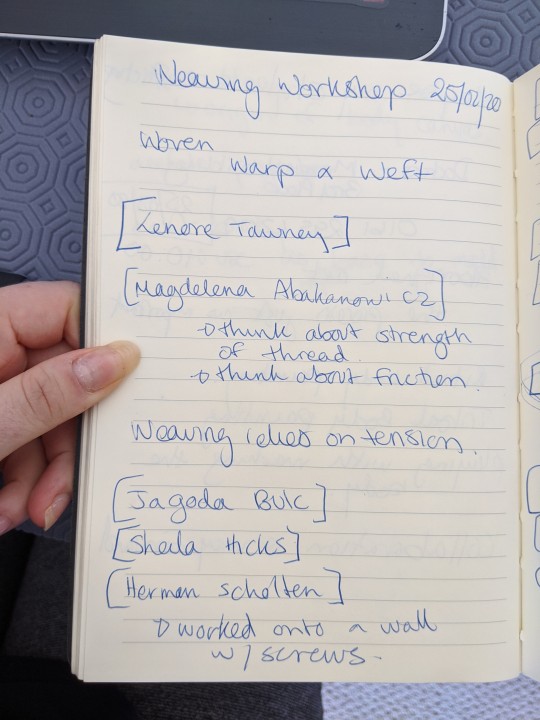 Weaving Workshop 25/02/20
Woven
Warp & Weft
[Lenore Tawney]
[Magdelena Abakanowicz]
→ think about strength
of thread.
→ think about friction.
Weaving relies on tension.
[Jagoda Buic]
[Sheila Hicks]
[Herman Scholten]
→ worked onto a wall
w/ screws.